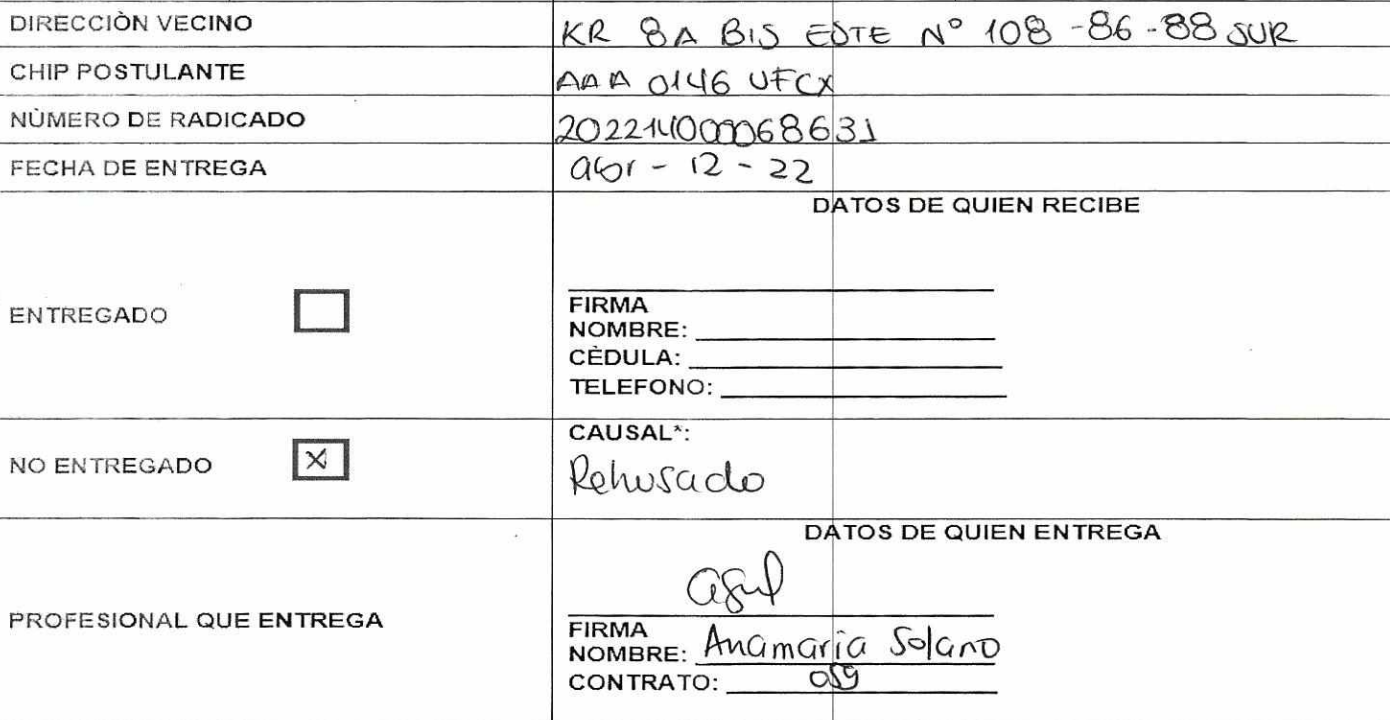 DIRECCIÒN VECINO KR 8A BIS ESTE N° 108-86-88 SUR
CHIP POSTULANTE AAA 0146 UFCX
NÙMERO DE RADICADO 202214000068631
FECHA DE ENTREGA abr - 12 - 22
DATOS DE QUIEN RECIBE
ENTREGADO
FIRMA
NOMBRE:
CÈDULA:
TELEFONO:
NO ENTREGADO X
CAUSAL*:
Rehusado
DATOS DE QUIEN ENTREGA
PROFESIONAL QUE ENTREGA
FIRMA
NOMBRE: Anamaria Solano
CONTRATO: 059